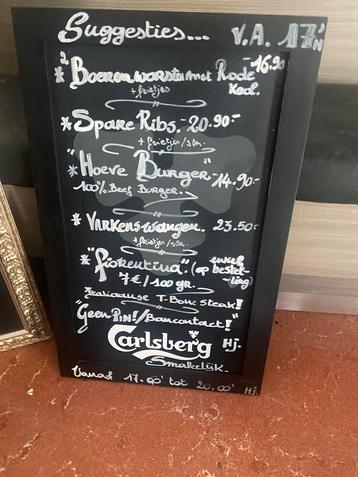 Suggesties... V.A. 17'N
* 2 Boerenworsten met Rode -16.90
+ frietjes Kool.
* Spare Ribs. - 20.90 -
+ frietjes/sla.
"Hoeve Burger"
100% Beef Burger. - 14.90 -
* Varkenswangen. 23.50 -
+ frietjes/sla.
* "fiorentina". (op bestelling) enkel
7€/100 gr.
Italiaanse T-Bone steak!
"Geen Pin!/Bancontact!"
Carlsberg Hj.
Smakelijk.
Vanaf 17.00' tot 20.00' Hj